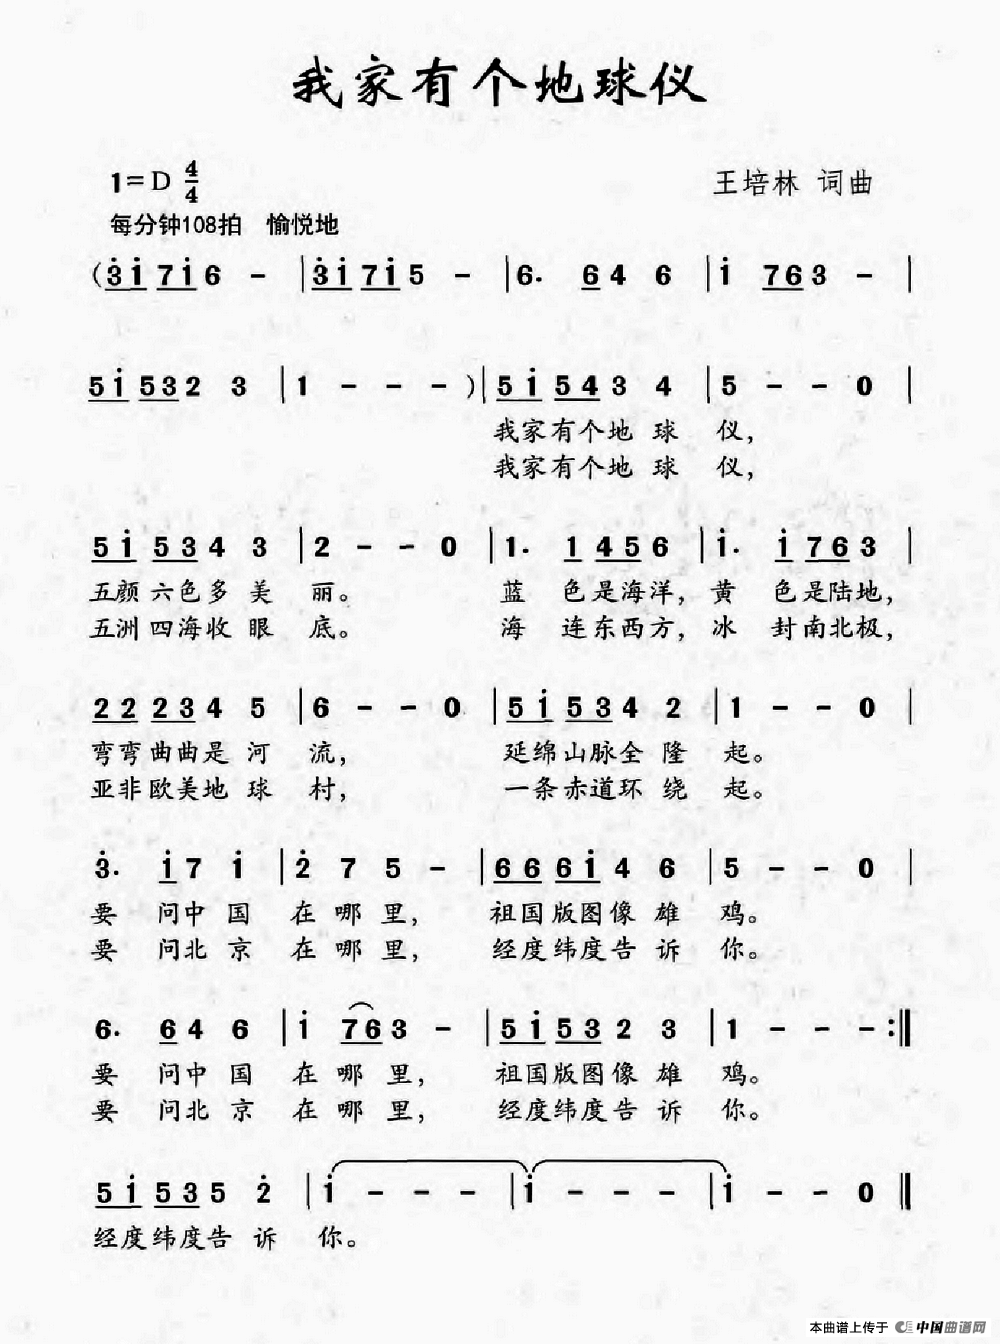 我家有个地球仪
1=D 4/4
王培林 词曲
每分钟108拍 愉悦地
(3̇1̇ 71̇6 - | 3̇1̇ 71̇5 - | 6. 64 6 | 1̇ 763 - |
51̇ 532 3 | 1 - - - )| 51̇ 543 4 | 5 - - 0 |
我家有个地 球 仪,
我家有个地 球 仪,
51̇ 534 3 | 2 - - 0 | 1. 1 456 | 1̇. 1̇ 763 |
五颜六色多 美 丽。 蓝 色是海洋, 黄 色是陆地,
五洲四海收 眼 底。 海 连东西方, 冰 封南北极,
22 234 5 | 6 - - 0 | 51̇ 534 2 | 1 - - 0 |
弯弯曲曲是 河 流, 延绵山脉全 隆 起。
亚非欧美地 球 村, 一条赤道环 绕 起。
3̇. 1̇7 1̇ | 2̇ 7 5 - | 6661̇ 4 6 | 5 - - 0 |
要 问中 国 在 哪 里, 祖国版图像 雄 鸡。
要 问北 京 在 哪 里, 经度纬度告 诉 你。
6. 64 6 | 1̇ 763 - | 51̇ 532 3 | 1 - - - :‖
要 问中 国 在 哪 里, 祖国版图像 雄 鸡。
要 问北 京 在 哪 里, 经度纬度告 诉 你。
51̇ 535 2̇ | 1̇ - - - | 1̇ - - - | 1̇ - - 0 ‖
经度纬度告 诉 你。
本曲谱上传于 中国曲谱网